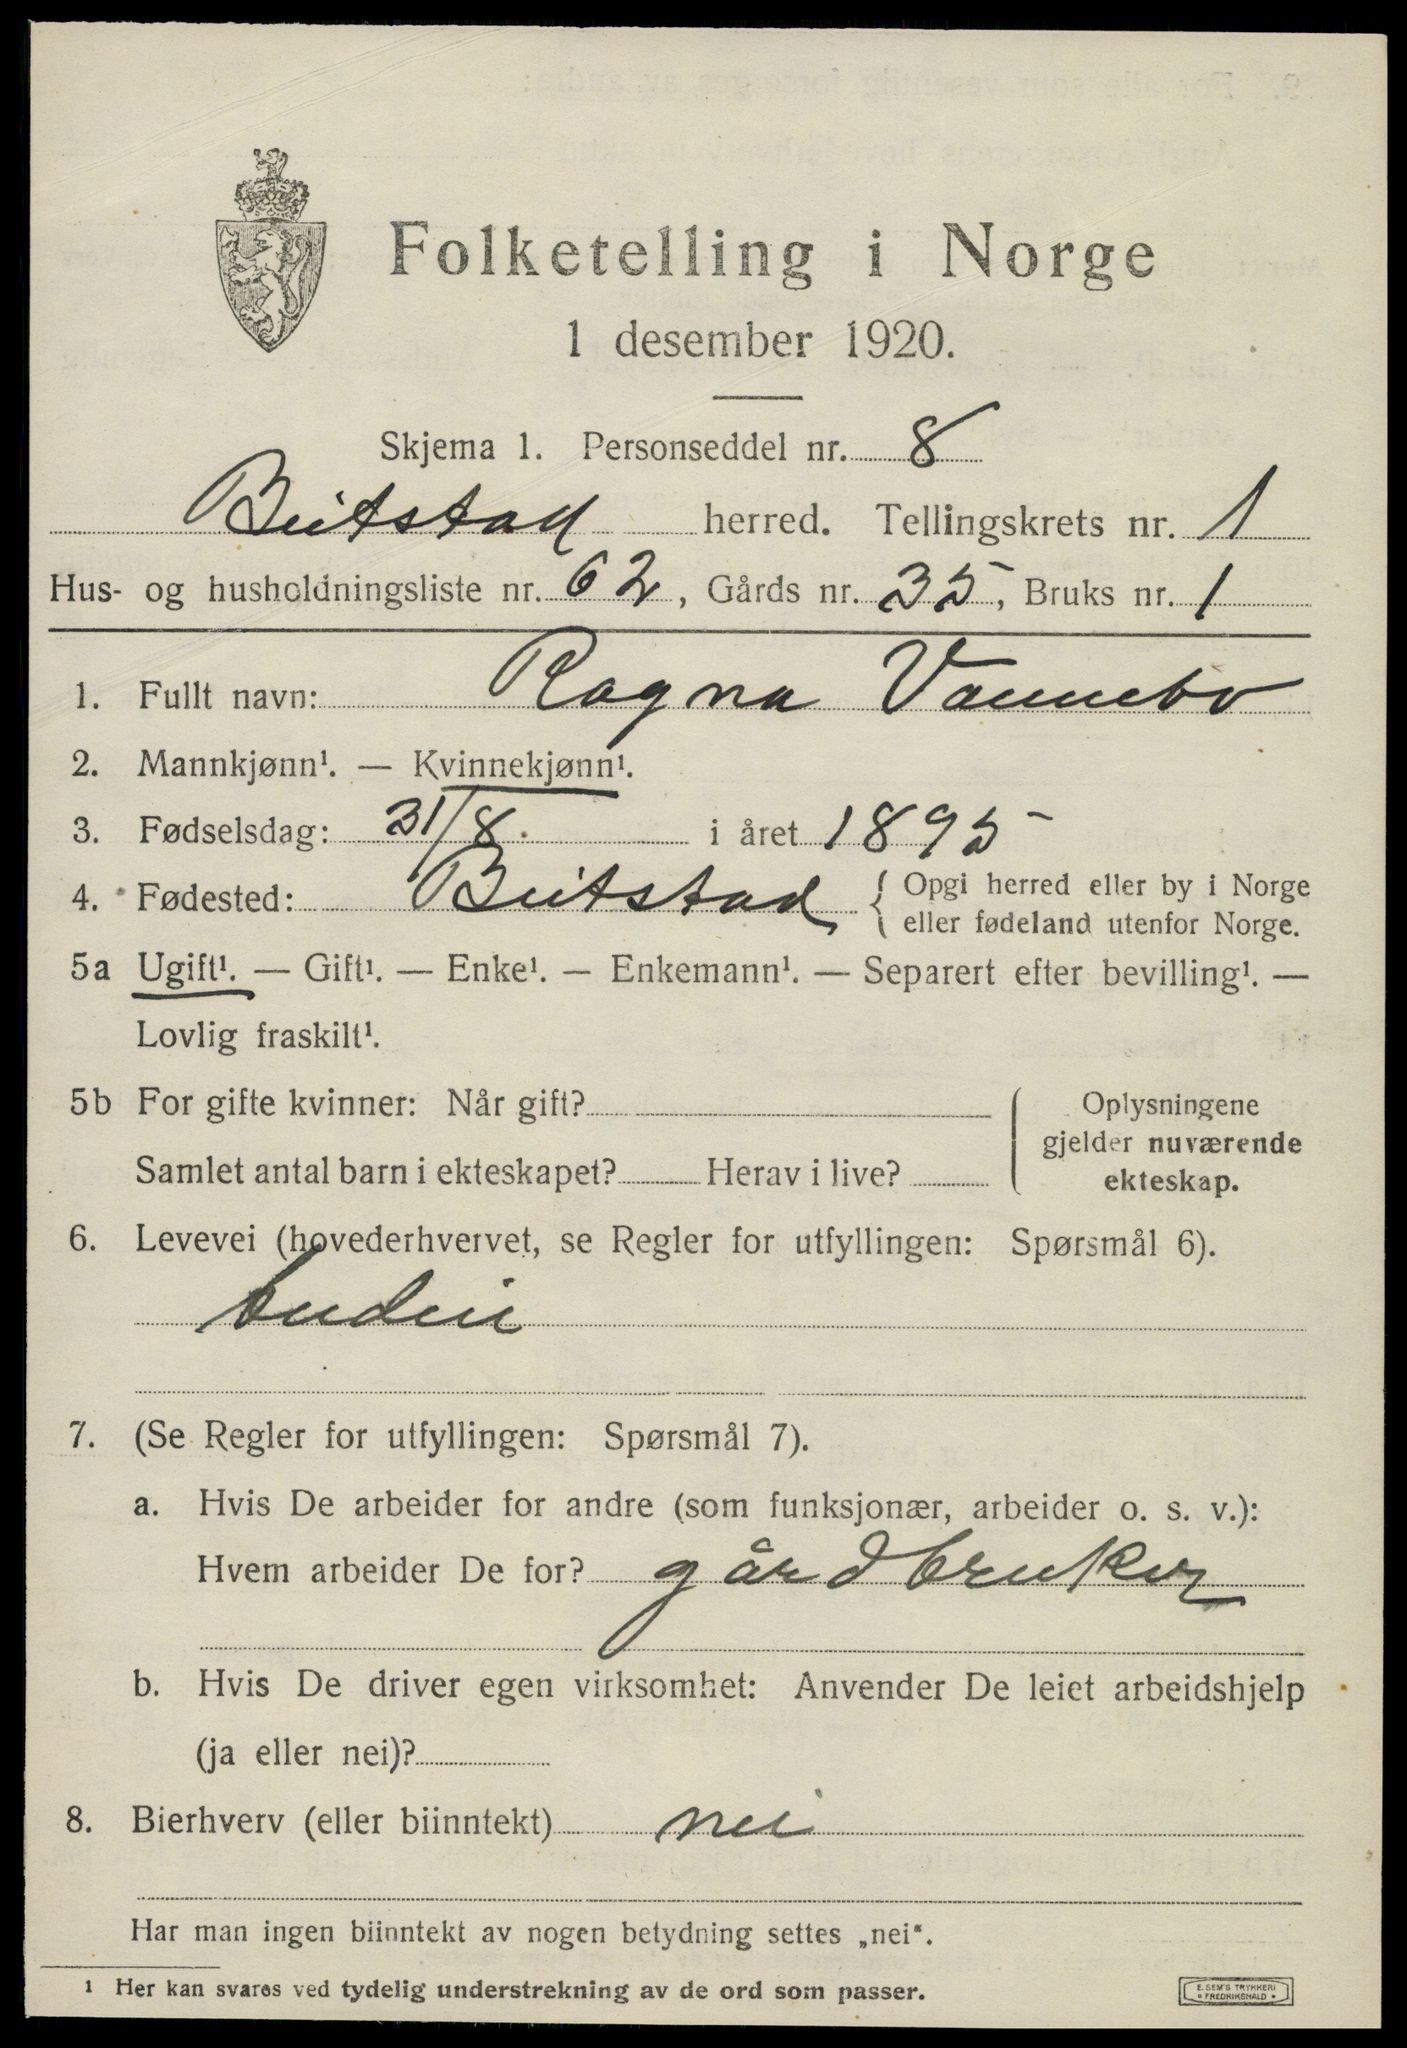 Folketelling i Norge
1 desember 1920.
Skjema 1. Personseddel nr. 8
Beitstad herred. Tellingskrets nr. 1
Hus- og husholdningsliste nr. 62, Gårds nr. 35, Bruks nr. 1
1. Fullt navn: Ragna Vannebo
2. Mannkjønn¹. — Kvinnekjønn¹.
3. Fødselsdag: 31/8. i året 1895
4. Fødested: Beitstad { Opgi herred eller by i Norge
eller fødeland utenfor Norge.
5a Ugift¹. — Gift¹. — Enke¹. — Enkemann¹. — Separert efter bevilling¹. —
Lovlig fraskilt¹.
5b For gifte kvinner: Når gift?
Samlet antal barn i ekteskapet? Herav i live?
Oplysningene
gjelder nuværende
ekteskap.
6. Levevei (hovederhvervet, se Regler for utfyllingen: Spørsmål 6).
budeie
7. (Se Regler for utfyllingen: Spørsmål 7).
a. Hvis De arbeider for andre (som funksjonær, arbeider o. s. v.):
Hvem arbeider De for? gårdbruker
b. Hvis De driver egen virksomhet: Anvender De leiet arbeidshjelp
(ja eller nei)?
8. Bierhverv (eller biinntekt) nei
Har man ingen biinntekt av nogen betydning settes „nei".
1 Her kan svares ved tydelig understrekning av de ord som passer.
E. SEM'S TRYKKERI
FREDRIKSHALD